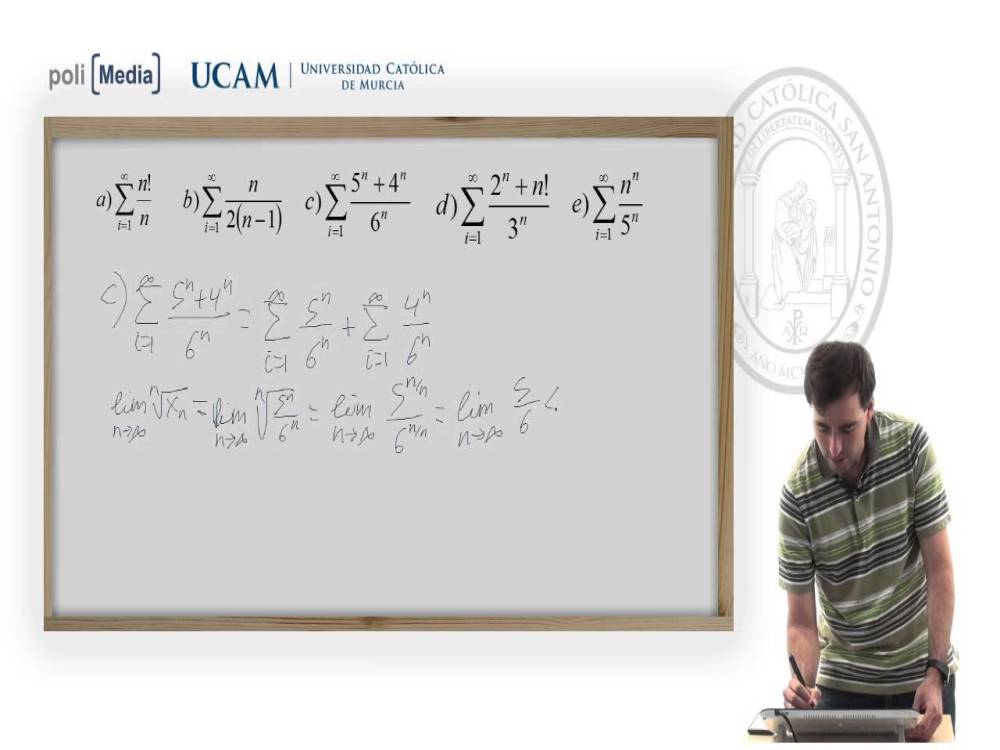 poli [Media] UCAM | UNIVERSIDAD CATÓLICA
DE MURCIA
CATÓLICA SAN ANTONIO
IN LIBERTATEM VOCATI
AÑO MCM
a) ∑_{i=1}^{∞} n!/n b) ∑_{i=1}^{∞} n/2(n−1) c) ∑_{i=1}^{∞} (5^n + 4^n)/6^n d) ∑_{i=1}^{∞} (2^n + n!)/3^n e) ∑_{i=1}^{∞} n^n/5^n
c) ∑_{i=1}^{∞} (5^n+4^n)/6^n = ∑_{i=1}^{∞} 5^n/6^n + ∑_{i=1}^{∞} 4^n/6^n
lim_{n→∞} ^n√x_n = lim_{n→∞} ^n√(5^n/6^n) = lim_{n→∞} 5^{n/n}/6^{n/n} = lim_{n→∞} 5/6 <